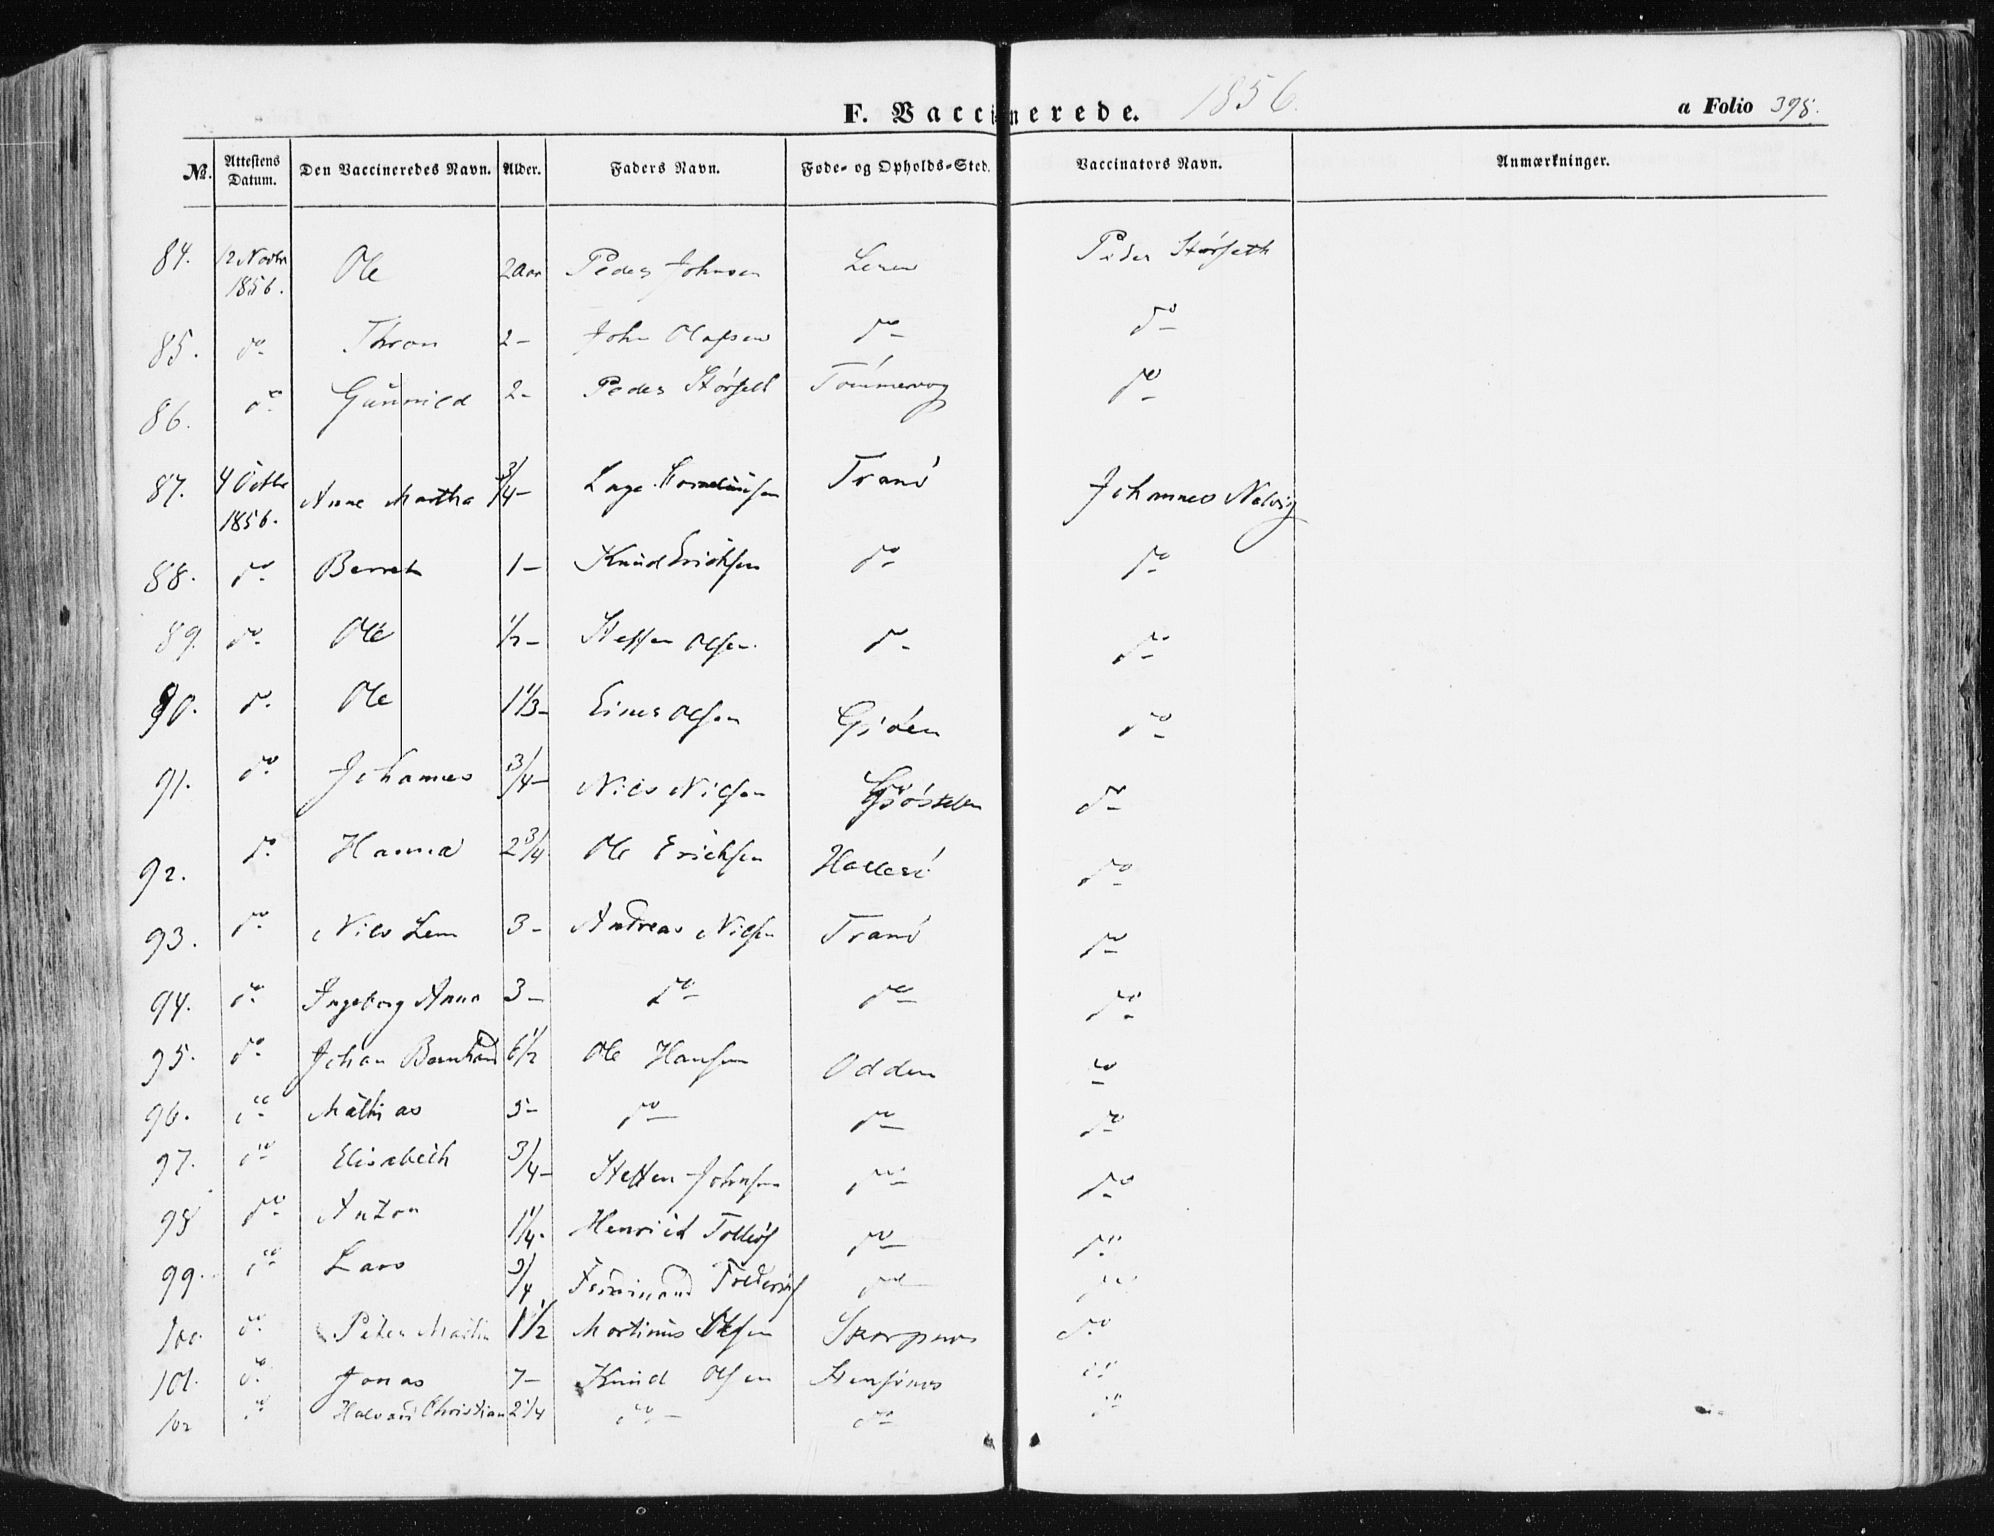 F. Vaccinerede. 1856.
a Folio 398.
No. Attestens Datum. Den Vaccineredes Navn. Alder. Faders Navn. Føde- og Opholds-Sted. Vaccinators Navn. Anmærkninger.
84. 12 Novbr 1856. Ole 2 Aar Peder Johnsen Leren Peder Störseth
85. do John Olafsen do do 2-
86. do Gunnild 2- Peder Störseth Tömmervog do
87. 4 Octbr 1856. Anne Martha 3/4- Lage Tranö Johannes Nelvig
88. do Berret 1- Knud Erichsen do do
89. do Ole 1/2- Steffen Olsen do do
90. do Ole 1 1/3- Einer Olsen Gjöen do
91. do Johannes 3/4- Nils Nilsen do
92. do Hanna 2 3/4 Ole Erichsen do
93. do Nils Lem 3- Andreas Nilsen Tranö do
94. do Ingeborg Anna 3- do do do
95. do Johan Bernhard 6 1/2 Ole Hansen Odden do
96. do Mathias 5- do do do
97. do Elisabeth 3/4- Steffen Johnsen do do
98 do Anton 1 1/4- Henrich do do
99. do Lars 3/4 Ferdinand do do
100. do Peter Martin 1 1/2 Mortinus Olsen Skorpnes do
101. do Jonas 7- Knud Olsen Stensönes do
102 do Halvard Christian 2 1/4 do do do